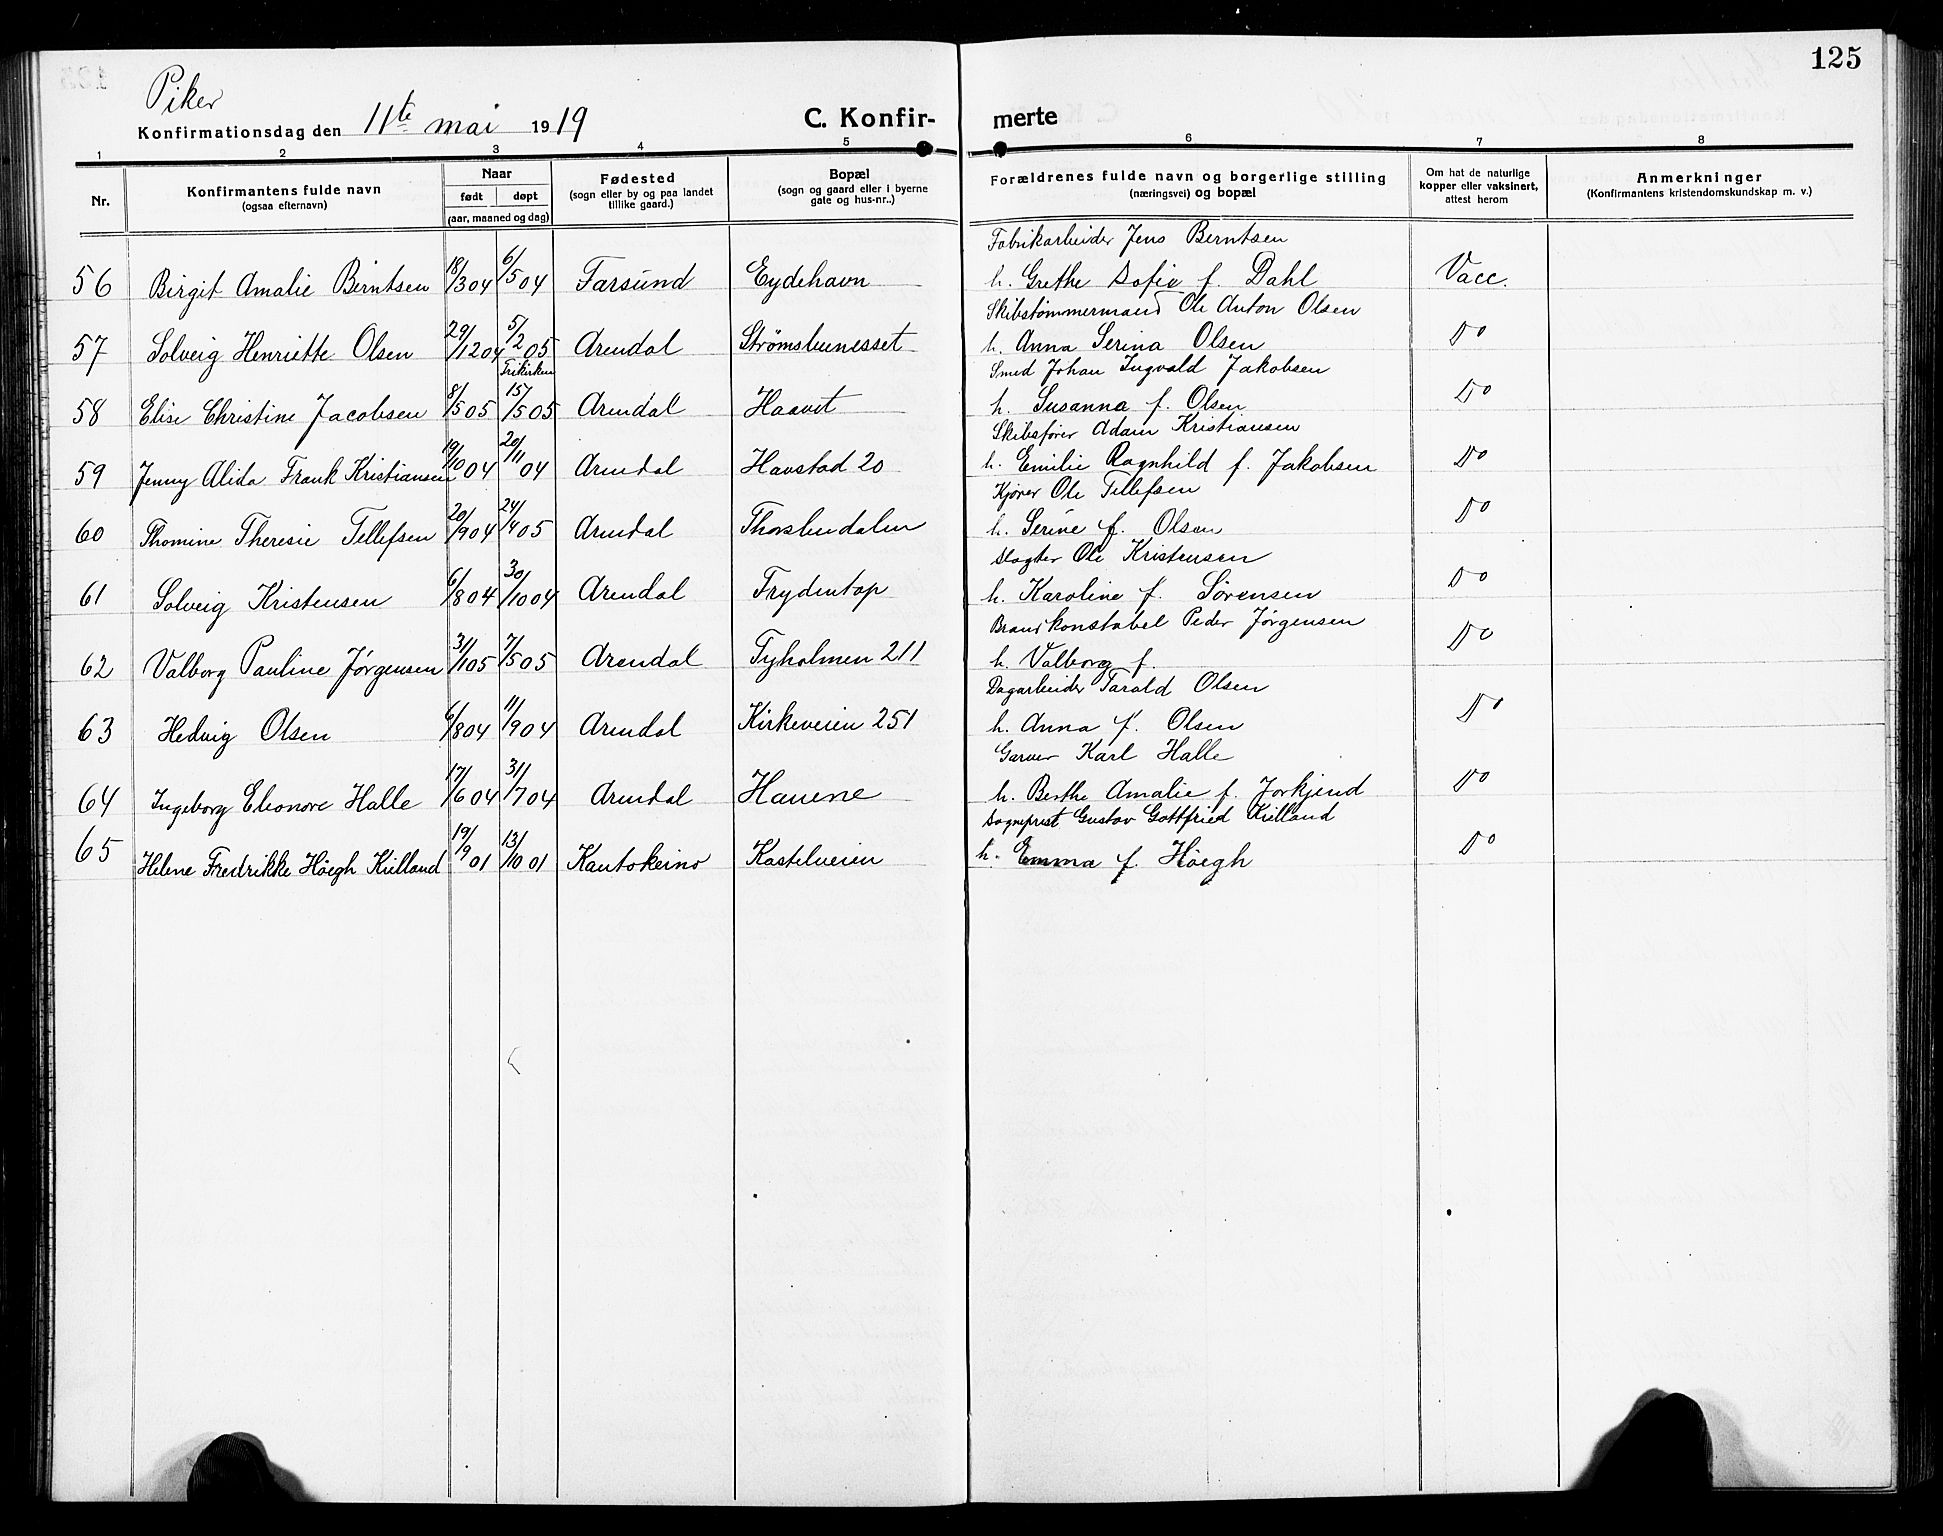 125
Piker
Konfirmationsdag den 11te mai 1919 C. Konfir- merte
1 2 3 4 5 6 7 8
Nr.
Konfirmantens fulde navn
(ogsaa efternavn)
Naar
født døpt
(aar, maaned og dag)
Fødested
(sogn eller by og paa landet
tillike gaard.)
Bopæl
(sogn og gaard eller i byerne
gate og hus-nr..)
Forældrenes fulde navn og borgerlige stilling
(næringsvei) og bopæl
Om hat de naturlige
kopper eller vaksinert,
attest herom
Anmerkninger
(Konfirmantens kristendomskundskap m. v.)
Fabrikarbeider Jens Berntsen
56 Birgit Amalie Berntsen 18/3 04 6/5 04 Farsund Eydehavn h. Grethe Sofie f. Dahl Vacc.
Skibstømmermand Ole Anton Olsen
57 Solveig Henriette Olsen 29/12 04 5/2 05 Arendal Strømsbunesset h. Anna Serina Olsen Do
Frikirken
Smed Johan Ingvald Jakobsen
58 Elise Christine Jacobsen 8/5 05 15/5 05 Arendal Haavet h. Susanna f. Olsen Do
Skibsfører Adam Kristiansen
59 Jenny Alida Frank Kristiansen 19/10 04 20/11 04 Arendal Havstad 20 h. Emilie Ragnhild f. Jakobsen Do
Kjører Ole Tellefsen
60 Thomine Theresie Tellefsen 20/9 04 24/4 05 Arendal Thorsbudalen h. Serine f. Olsen Do
Slagter Ole Kristensen
61 Solveig Kristensen 6/8 04 30/10 04 Arendal Frydentop h. Karoline f. Sørensen Do
Brandkonstabel Peder Jørgensen
62 Valborg Pauline Jørgensen 3/1 05 7/5 05 Arendal Tyholmen 211 h. Valborg f. Do
Dagarbeider Tarald Olsen
63 Hedvig Olsen 6/8 04 11/9 04 Arendal Kirkeveien 251 h. Anna f. Olsen Do
Garver Karl Halle
64 Ingeborg Eleonore Halle 17/6 04 31/7 04 Arendal Hauene h. Berthe Amalie f. Jorkjend Do
Sogneprest Gustav Gottfried Kielland
65 Helene Fredrikke Höegh Kielland 19/9 01 13/10 01 Kautokeino Kastelveien h. Emma f. Höegh Do